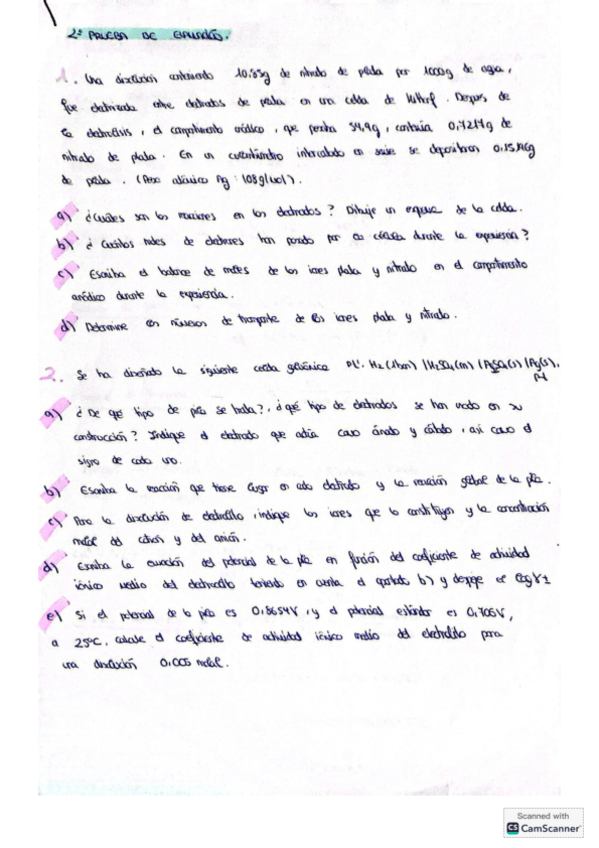 2ª PRUEBA DE EVALUACIÓN.
1. Una disolución conteniendo 10,83g de nitrato de plata por 1000g de agua,
fue electrolizada entre electrodos de plata en una celda de Hittorf. Después de
la electrólisis, el compartimento anódico, que pesaba 54,9g, contenía 0,7217g de
nitrato de plata. En un culombímetro intercalado en serie se depositaron
de plata. (Peso atómico Ag: 108g/mol).
a) ¿Cuáles son las reacciones en los electrodos? Dibuje un esquema de la celda.
b) ¿Cuántos moles de electrones han pasado por la célula durante la experiencia?
c) Escriba el balance de moles de los iones plata y nitrato en el compartimento
anódico durante la experiencia.
d) Determine los números de transporte de los iones plata y nitrato.
2. Se ha diseñado la siguiente celda galvánica Pt, H₂(1bar) |H₂SO₄(m) |Ag₂SO₄(s) |Ag(s),
Pt
a) ¿De qué tipo de pila se trata?, ¿qué tipo de electrodos se han usado en su
construcción? Indique el electrodo que actúa como ánodo y cátodo, así como el
signo de cada uno.
b) Escriba la reacción que tiene lugar en cada electrodo y la reacción global de la pila.
c) Para la disolución de electrolito, indique los iones que la constituyen y la concentración
molal del catión y del anión.
d) Escriba la ecuación del potencial de la pila en función del coeficiente de actividad
iónico medio del electrolito teniendo en cuenta el apartado b) y despeje el log γ±
e) Si el potencial de la pila es 0,8654V, y el potencial estándar es 0,705V,
a 25ºC, calcule el coeficiente de actividad iónico medio del electrolito para
una disolución 0,005 molal.
Scanned with
CS CamScanner